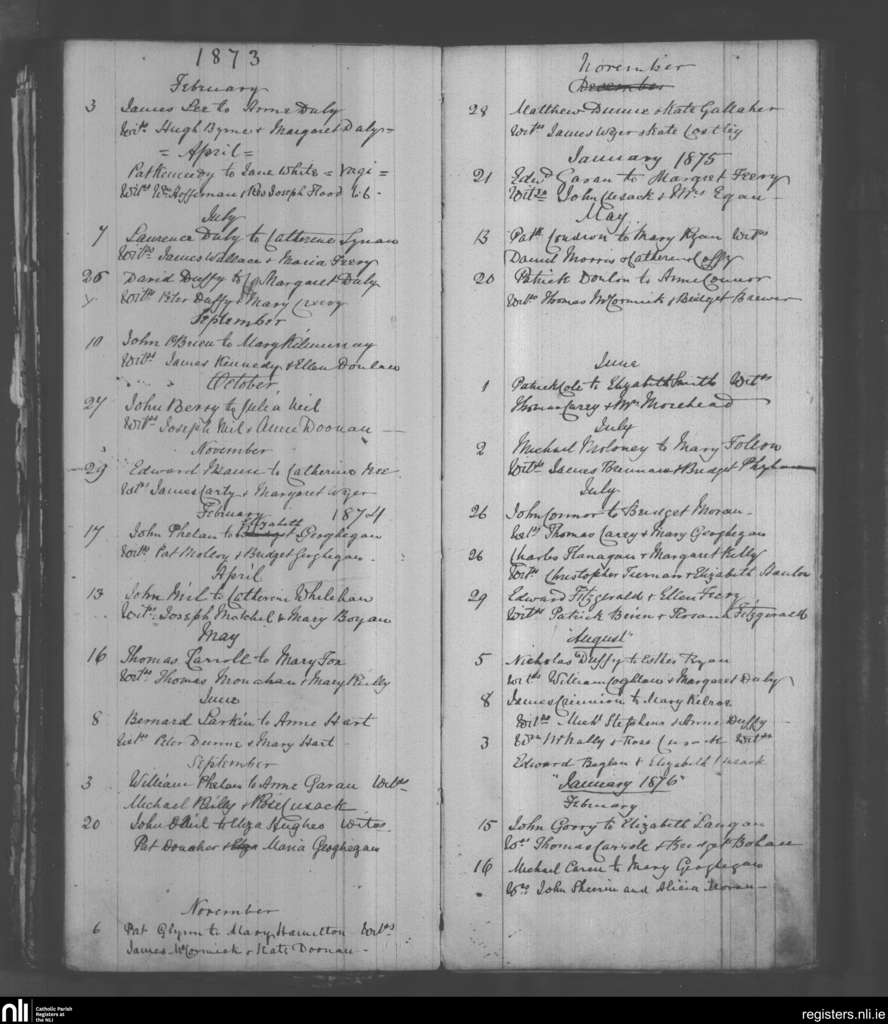 1873
February
3 James Lee to Anne Daly
Wits Hugh Byrne & Margaret Daly =
= April =
Pat Kennedy to Jane White =
Wits Wm Heffernan & Rev Joseph Flood
July
7 Laurence Daly to Catherine Lynam
Wits James Wallace & Maria Feery
26 David Duffy to Margaret Daly
Wits Peter Duffy & Mary
September
10 John O'Brien to Mary Kilmurray
Wits James Kennedy & Ellen Doulan
October
27 John Berry to Julia Neil
Wits Joseph Neil & Anne Doonan
November
29 Edward to Catherine
Wits James Carty & Margaret Wyer
February 1874
17 John Phelan to Elizabeth Geoghegan
Wits Pat Molloy & Bridget Geoghegan
April
13 John Neil to Catherine Whelehan
Wits Joseph Mitchel & Mary Bogan
May
16 Thomas Carroll to Mary Fox
Wits Thomas Monahan & Mary Reilly
June
8 Bernard Larkin to Anne Hart
Wits Peter Dunne & Mary Hart
September
3 William Phelan to Anne Garan Wits
Michael Reilly & Rose Cusack
20 John O'Neil to Eliza Hughes Wits
Pat Donaher & Maria Geoghegan
November
6 Pat Glynn to Mary Hamilton Wits
James McCormick & Kate Doonan
November
December
28 Matthew Dunne & Kate Gallaher
Wits James Wyer & Kate Costley
January 1875
21 Edwd Garan to Margret Feery
Witss John Cusack & Mrs Egan
May
13 Patk Condron to Mary Ryan Wits
Daniel Morris & Catherine Coffy
20 Patrick Donlon to Anne Connor
Wits Thomas McCormick & Bridget Brewer
June
1 Patrick Cole to Elizabeth Smith Wits
Thomas Carey & Mrs Morehead
July
2 Michael Moloney to Mary Folson
Wits James Brennan & Bridget Phelan
July
26 John Connor to Bridget Moran
Wits Thomas Carey & Mary Geoghegan
26 Charles Flanagan & Margaret Kelly
Wits Christopher Tiernan & Elizabeth Hanlon
29 Edward Fitzgerald & Ellen Feery
Wits Patrick Binn & Rosanna Fitzgerald
"August"
5 Nicholas Duffy to Esther Ryan
Wits William Coghlan & Margaret Daly
8 James to Mary Kilroe
Wits Michl Stephens & Anne Duffy
3 Wm McNally & Rose Cusack Wits
Edward Baglan & Elizabeth Cusack
"January 1876"
February
15 John Gorry to Elizabeth Langan
Ws Thomas Carroll & Bridget Bolan
16 Michael Caren to Mary Geoghegan
Ws John and Alicia Moran
nli Catholic Parish
Registers at
the NLI
registers.nli.ie